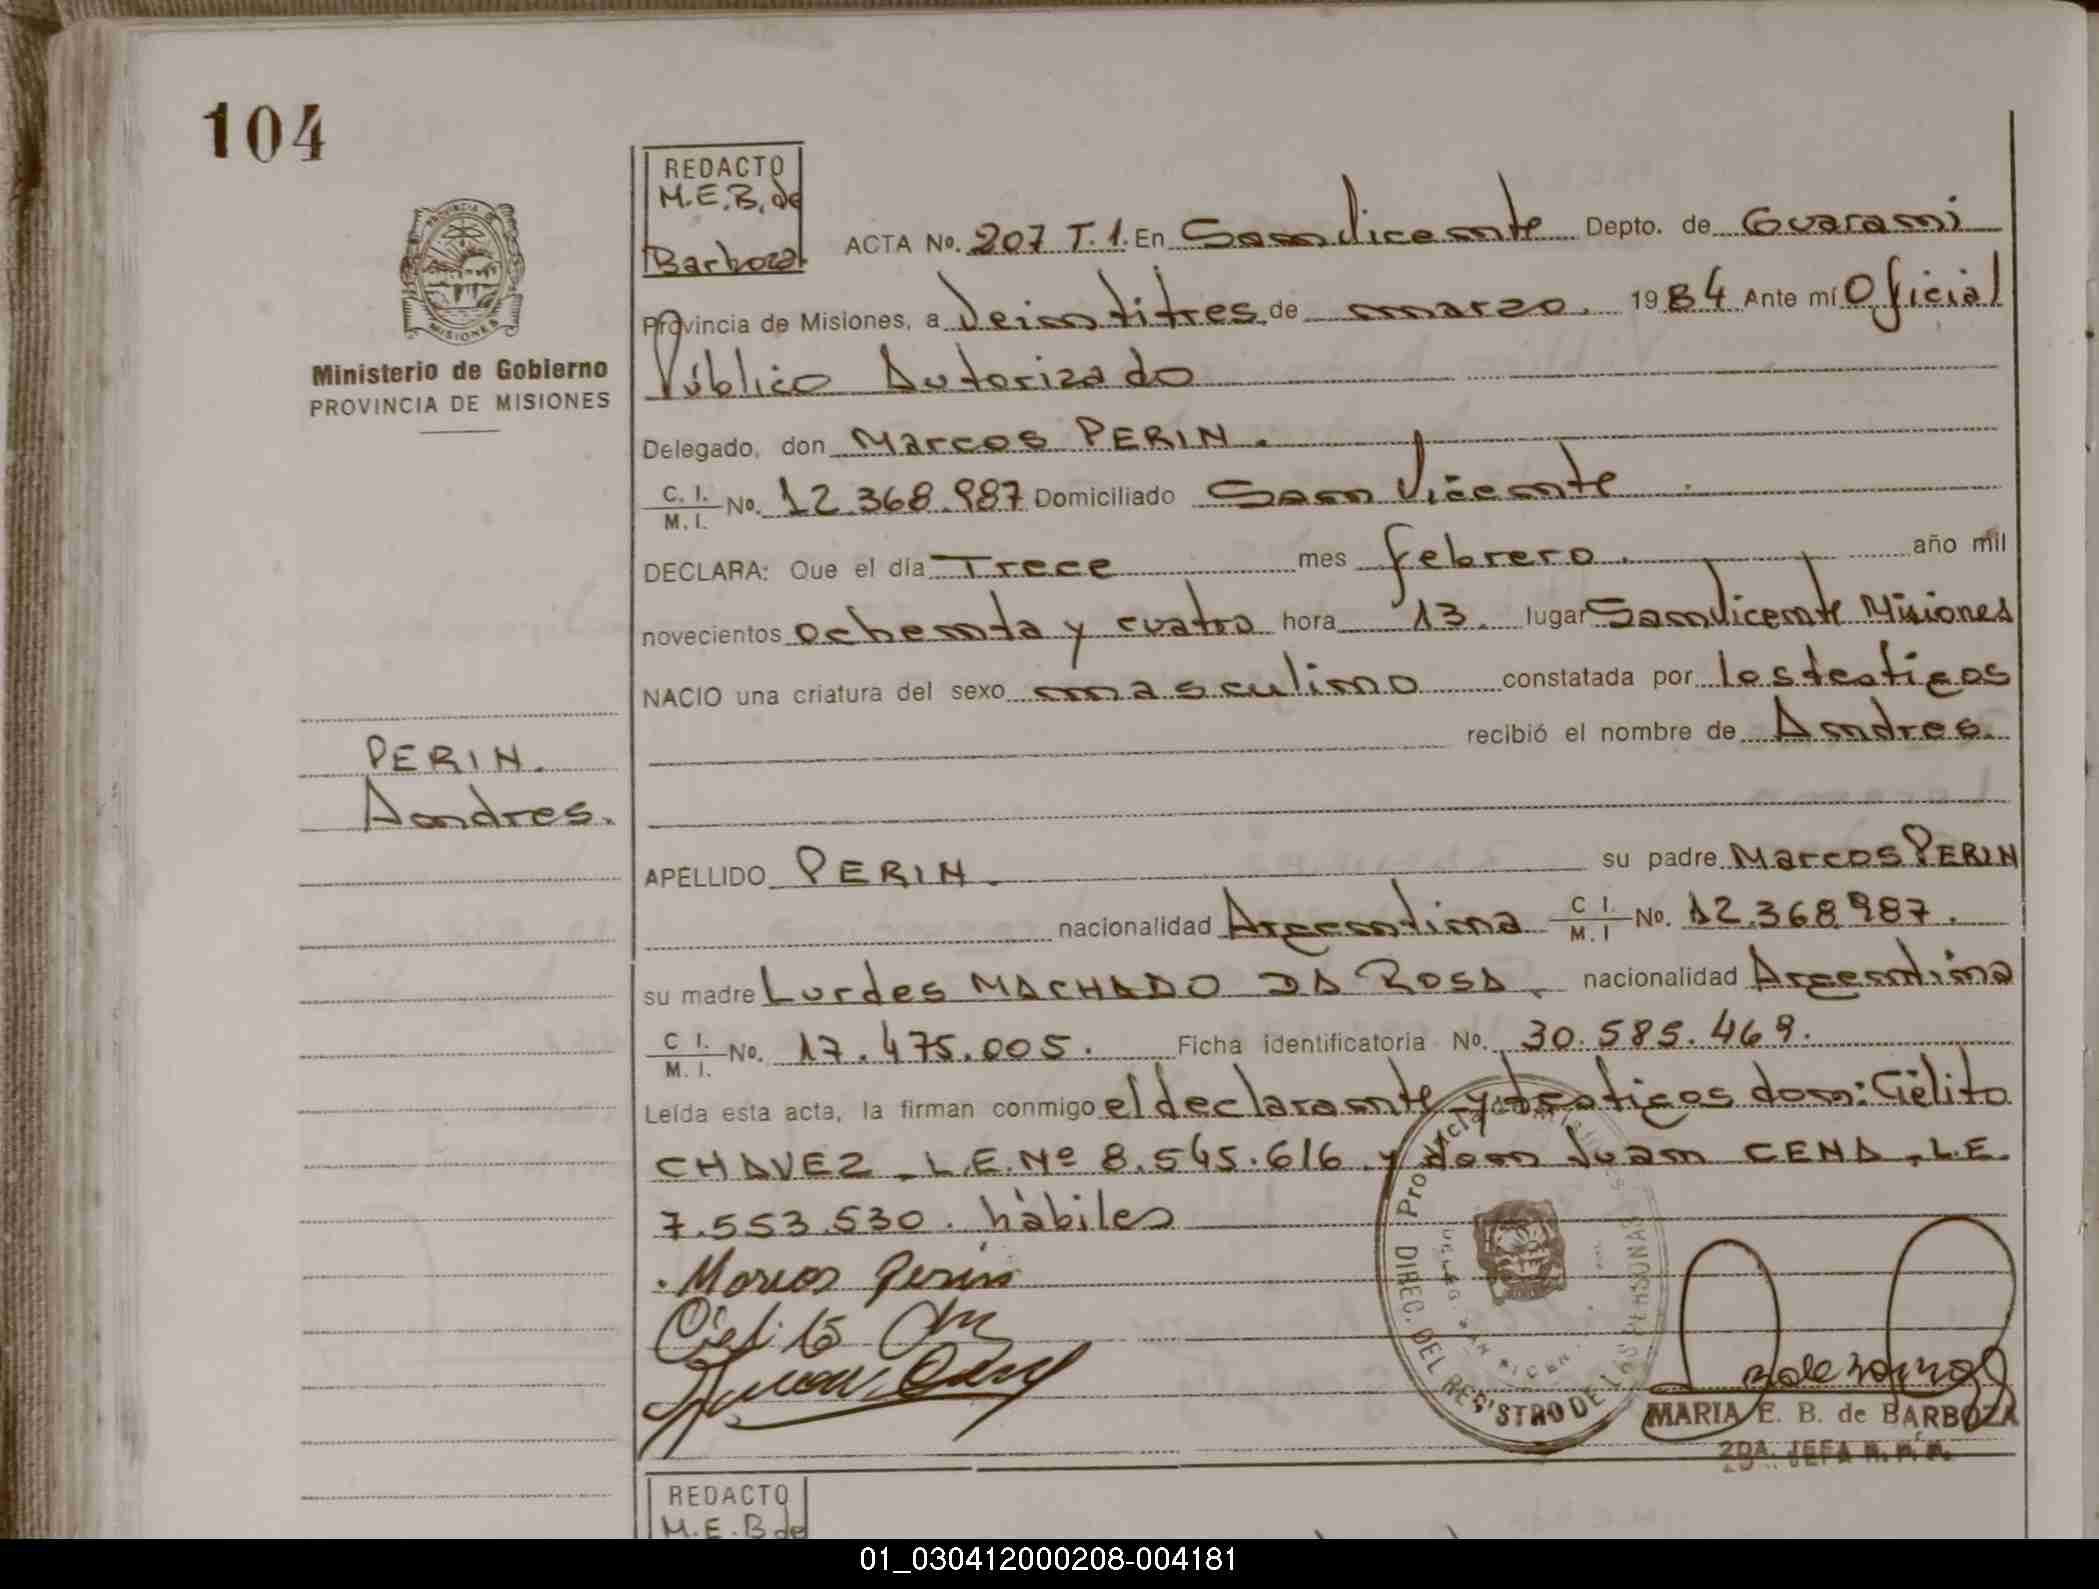 104
PROVINCIA DE
MISIONES
Ministerio de Gobierno
PROVINCIA DE MISIONES
PERIN.
Andres.
REDACTO
M.E.B. de
Barboza
ACTA No. 207 T.1. En San Vicente Depto. de Guarani
Provincia de Misiones, a Veintitres de marzo. 1984 Ante mí Oficial
Público Autorizado
Delegado, don Marcos PERIN.
C. I. / M. I. No. 12.368.987 Domiciliado San Vicente
DECLARA: Que el día Trece mes febrero. año mil
novecientos ochenta y cuatro hora 13. lugar San Vicente Misiones
NACIO una criatura del sexo masculino constatada por los testigos
recibió el nombre de Andres.
APELLIDO PERIN. su padre Marcos PERIN
nacionalidad Argentina C I. / M. I No. 12.368.987.
su madre Lurdes MACHADO DA ROSA. nacionalidad Argentina
C I. / M. I. No. 17.475.005. Ficha identificatoria No. 30.585.469.
Leída esta acta, la firman conmigo el declarante y testigos don: Cielito
CHAVEZ - L.E. Nº 8.545.616 y don Juan CENA, L.E.
7.553.530. hábiles
Marcos Perin
Cielito
Juan
Provincia de Misiones
DIREC. DEL REGISTRO DE LAS PERSONAS
MARIA E. B. de BARBOZA
2DA. JEFA
REDACTO
M.E.B de
01_030412000208-004181